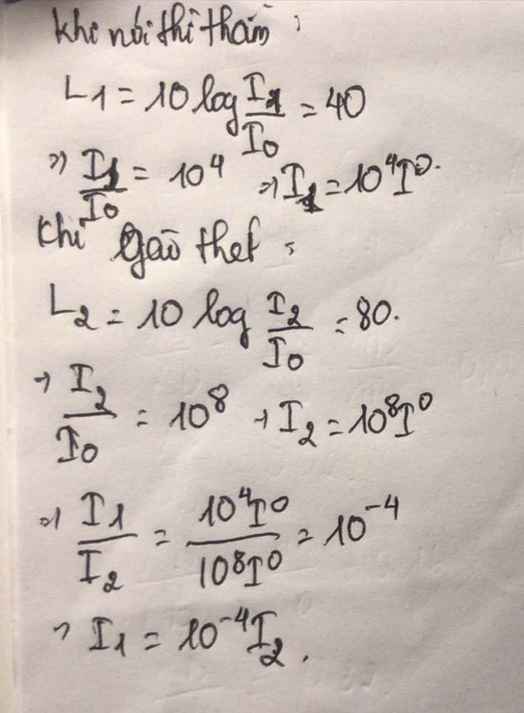 Khi nói thì thầm :
L1 = 10 log I1/I0 = 40
=> I1/I0 = 10^4 => I1 = 10^4 I^0.
Khi gào thét :
L2 = 10 log I2/I0 = 80.
→ I2/I0 = 10^8 → I2 = 10^8 I^0
=> I1/I2 = 10^4 I^0/10^8 I^0 = 10^-4
→ I1 = 10^-4 I2.